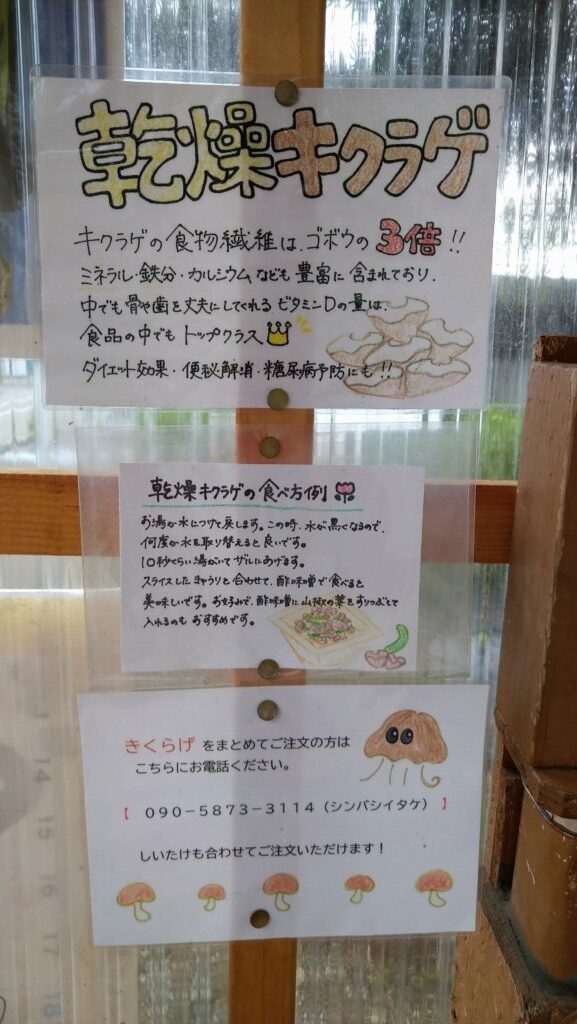 乾燥キクラゲ
キクラゲの食物繊維は、ゴボウの3倍!!
ミネラル・鉄分・カルシウムなども豊富に含まれており、
中でも骨や歯を丈夫にしてくれるビタミンDの量は、
食品の中でもトップクラス
ダイエット効果・便秘解消・糖尿病予防にも!!
乾燥キクラゲの食べ方例
お湯か水につけて戻します。この時、水が黒くなるので、
何度か水を取り替えると良いです。
10秒くらい湯がいてザルにあげます。
スライスしたキュウリと合わせて、酢味噌で食べると
美味しいです。お好みで、酢味噌に山椒の葉をすりつぶして
入れるのもおすすめです。
きくらげ をまとめてご注文の方は
こちらにお電話ください。
【 090-5873-3114(シンバシイタケ) 】
しいたけも合わせてご注文いただけます!
14
15
16
17
18